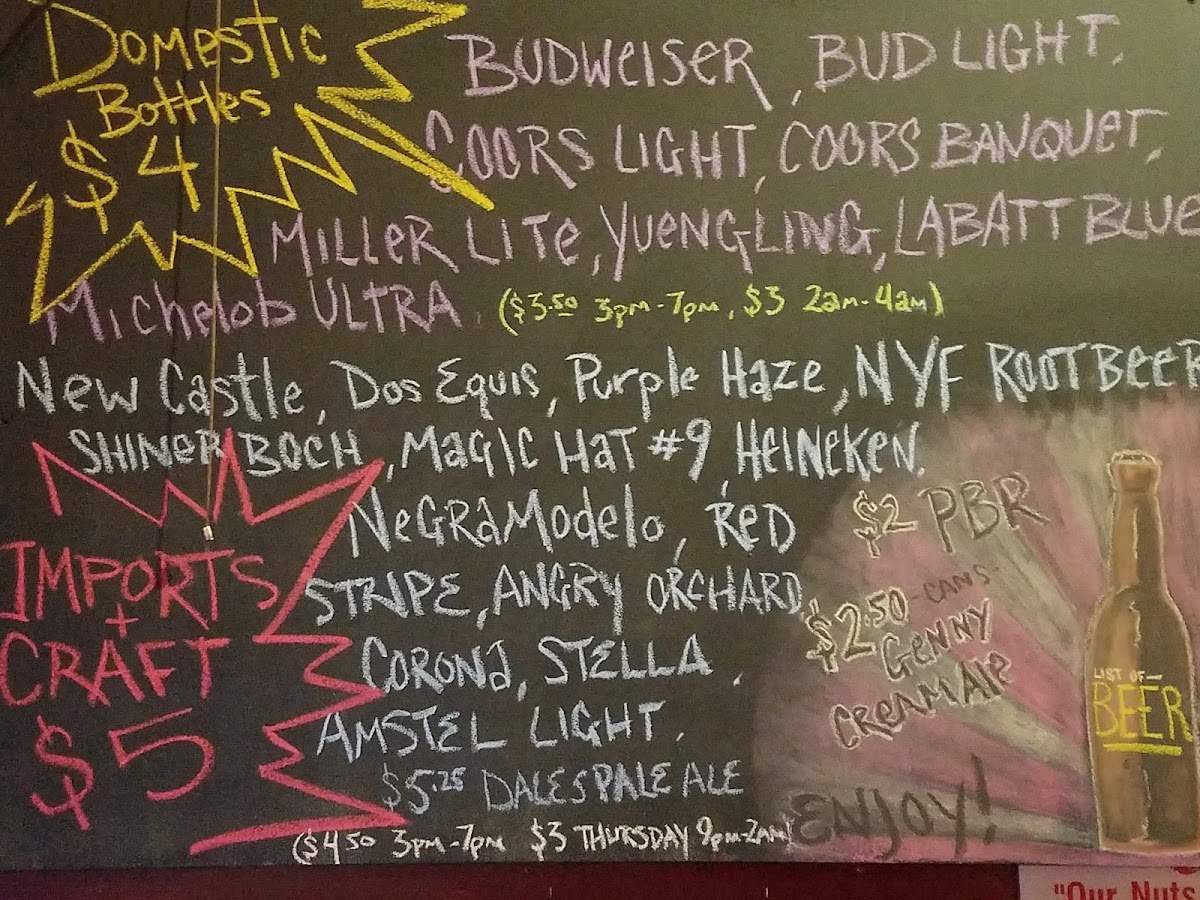 Domestic
Bottles
$4
BUDWEISER, BUD LIGHT,
COORS LIGHT, COORS BANQUET,
MILLER LITE, YUENGLING, LABATT BLUE
Michelob ULTRA ($3.50 3pm-7pm, $3 2am-4am)
New Castle, Dos Equis, Purple Haze, NYF ROOTBEER
SHINER BOCH, MAGIC HAT #9, HEINEKEN,
NeGRAModelo, RED
STRIPE, ANGRY ORCHARD,
CORONA, STELLA,
AMSTEL LIGHT,
$5.25 DALES PALE ALE
($4.50 3pm-7pm $3 THURSDAY 9pm-2am)
IMPORTS
+
CRAFT
$5
$2 PBR
$2.50 -CANS-
GENNY
CREAM Ale
ENJOY!
LIST OF
BEER
"Our Nuts